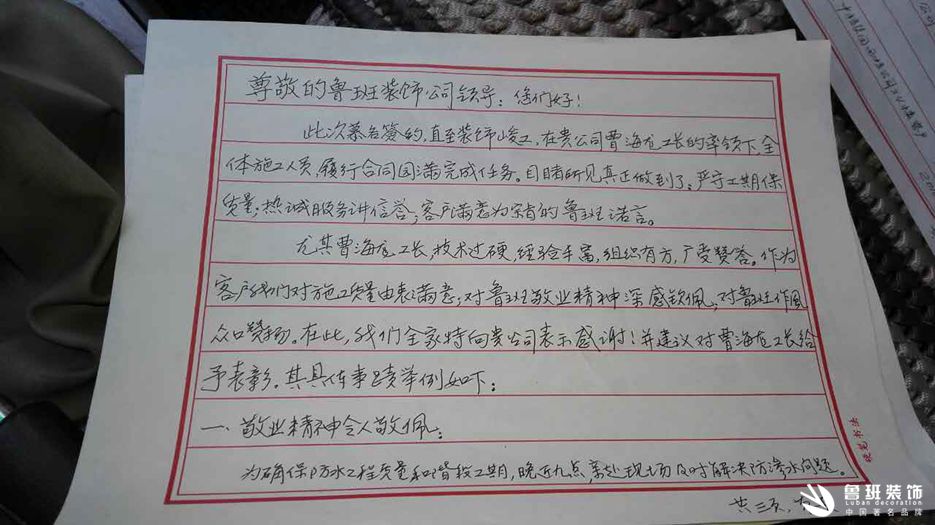 尊敬的鲁班装饰公司领导：您们好！
此次慕名签约，直至装饰竣工，在贵公司曹海龙工长的率领下，全
体施工人员，履行合同圆满完成任务。目睹所见真正做到了：严守工期保
质量；热诚服务讲信誉；客户满意为宗旨的鲁班诺言。
尤其曹海龙工长，技术过硬，经验丰富，组织有方，广受赞答。作为
客户我们对施工质量由衷满意；对鲁班敬业精神深感钦佩；对鲁班作风
众口赞扬。在此，我们全家特向贵公司表示感谢！并建议对曹海龙工长给
予表彰，其具体事迹举例如下：
一、敬业精神令人敬佩：
为确保防水工程质量和
工期，晚近九点，亲赴现场及时解决防渗水问题。
硬笔书法
共三页，
鲁班装饰
Luban decoration
中国著名品牌